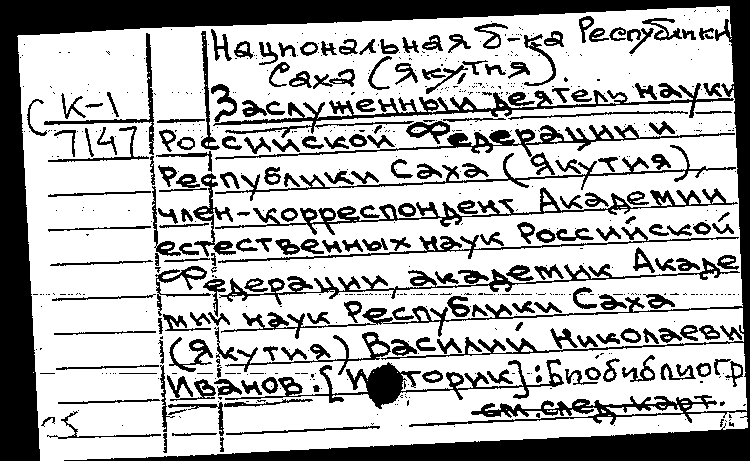 Национальная б-ка Республики
Саха (Якутия).
К-1 Заслуженный деятель науки
7147 Российской Федерации и
Республики Саха (Якутия),
член-корреспондент Академии
естественных наук Российской
Федерации, академик Акаде
мии наук Республики Саха
(Якутия) Василий Николаеви
Иванов: [И торик]: Биобиблиогр
см. след. карт.